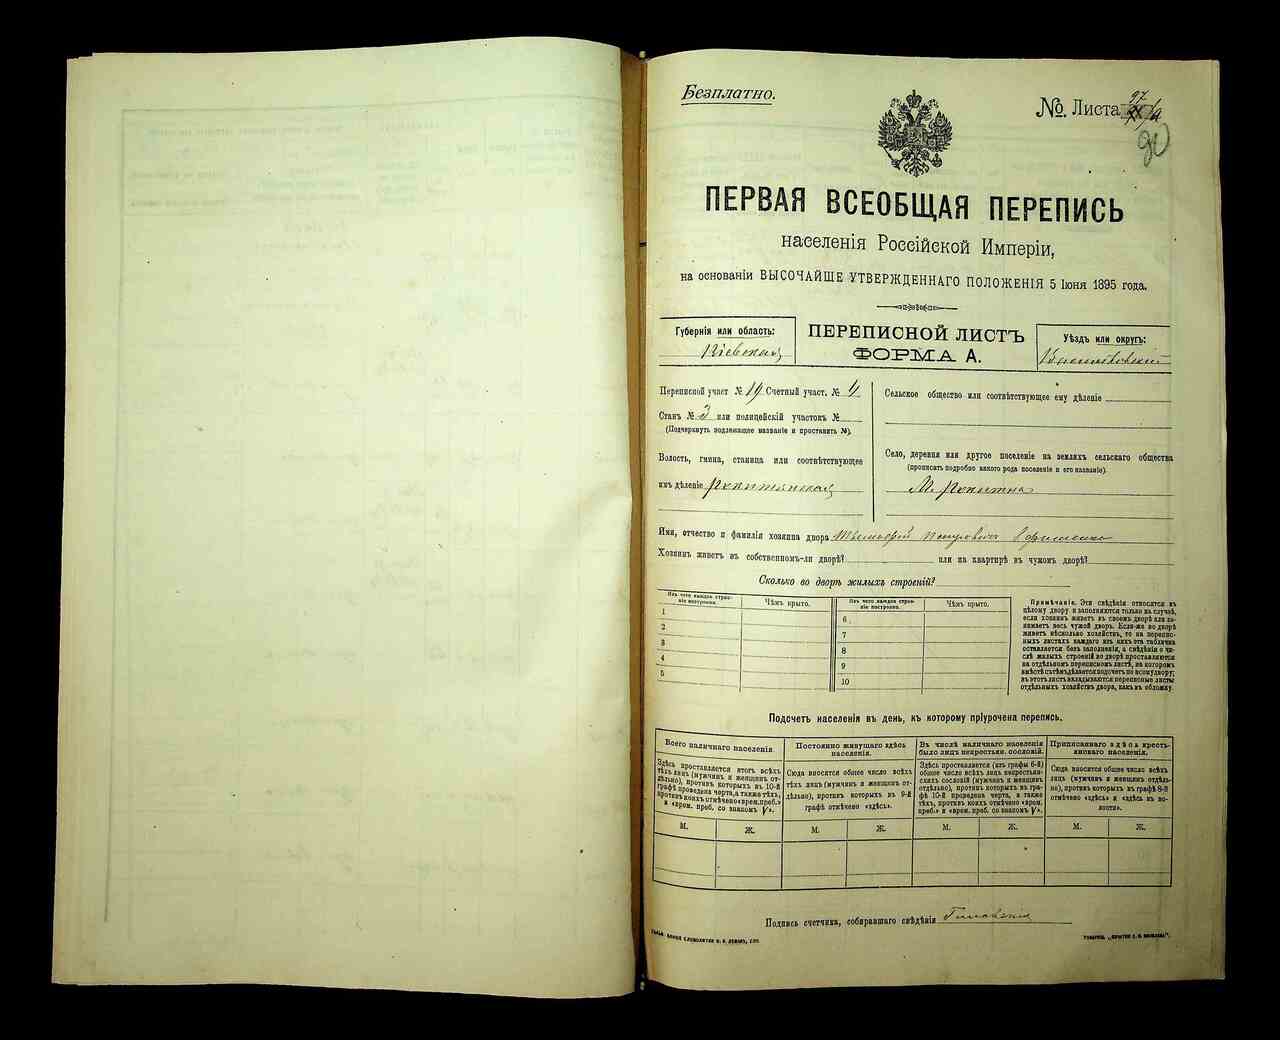 Безплатно.
№. Листа 97
90
ПЕРВАЯ ВСЕОБЩАЯ ПЕРЕПИСЬ
населенія Россійской Имперіи,
на основаніи ВЫСОЧАЙШЕ УТВЕРЖДЕННАГО ПОЛОЖЕНІЯ 5 Іюня 1895 года.
Губернія или область:
Кіевская
ПЕРЕПИСНОЙ ЛИСТЪ
ФОРМА А.
Уѣздъ или округъ:
Васильковскій
Переписной участ. № 19 Счетный участ. № 4
Станъ № 3 или полицейскій участокъ №
(Подчеркнуть подлежащее названіе и проставить №).
Волость, гмина, станица или соотвѣтствующее
имъ дѣленіе
Сельское общество или соотвѣтствующее ему дѣленіе
Село, деревня или другое поселеніе на земляхъ сельскаго общества
(прописать подробно какого рода поселеніе и его названіе).
М.
Имя, отчество и фамилія хозяина двора Петровичъ Ефименко
Хозяинъ живетъ въ собственномъ-ли дворѣ? или на квартирѣ въ чужомъ дворѣ?
Сколько во дворѣ жилыхъ строеній?
Изъ чего каждое строеніе построено.
Чѣмъ крыто.
1
2
3
4
5
Изъ чего каждое строеніе построено.
Чѣмъ крыто.
6
7
8
9
10
Примѣчаніе. Эти свѣдѣнія относятся къ
цѣлому двору и заполняются только на случай,
если хозяинъ живетъ въ своемъ дворѣ или занимаетъ
весь чужой дворъ. Если-же во дворѣ
живетъ нѣсколько хозяйствъ, то на переписныхъ
листахъ каждаго изъ нихъ эта табличка
оставляется безъ заполненія, а свѣдѣнія о числѣ
жилыхъ строеній во дворѣ проставляются
на отдѣльномъ переписномъ листѣ, на которомъ
вмѣстѣ съ тѣмъ дѣлается подсчетъ по всему двору;
въ этотъ листъ вкладываются переписные листы
отдѣльныхъ хозяйствъ двора, какъ въ обложку.
Подсчетъ населенія въ день, къ которому пріурочена перепись.
Всего наличнаго населенія
Здѣсь проставляется итогъ всѣхъ
тѣхъ лицъ (мужчинъ и женщинъ отдѣльно),
противъ которыхъ въ 10-й
графѣ проведена черта, а также тѣхъ,
противъ коихъ отмѣчено «врем. преб.»
и «врем. преб. со знакомъ V».
Постоянно живущаго здѣсь
населенія.
Сюда вносится общее число всѣхъ
тѣхъ лицъ (мужчинъ и женщинъ отдѣльно),
противъ которыхъ въ 9-й
графѣ отмѣчено «здѣсь».
Въ числѣ наличнаго населенія
было лицъ некрестьян. сословій.
Здѣсь проставляется (изъ графы 6-й)
общее число всѣхъ лицъ некрестьянскихъ
сословій (мужчинъ и женщинъ
отдѣльно), противъ которыхъ въ графѣ
10-й проведена черта, а также
тѣхъ, противъ коихъ отмѣчено «врем.
преб.» и «врем. преб. со знакомъ V».
Приписаннаго здѣсь крестьянскаго
населенія.
Сюда вносится общее число всѣхъ
лицъ (мужчинъ и женщинъ отдѣльно),
противъ которыхъ въ графѣ 8-й
отмѣчено «здѣсь» и «здѣсь въ волости».
М. Ж. М. Ж. М. Ж. М. Ж.
Подпись счетчика, собиравшаго свѣдѣнія